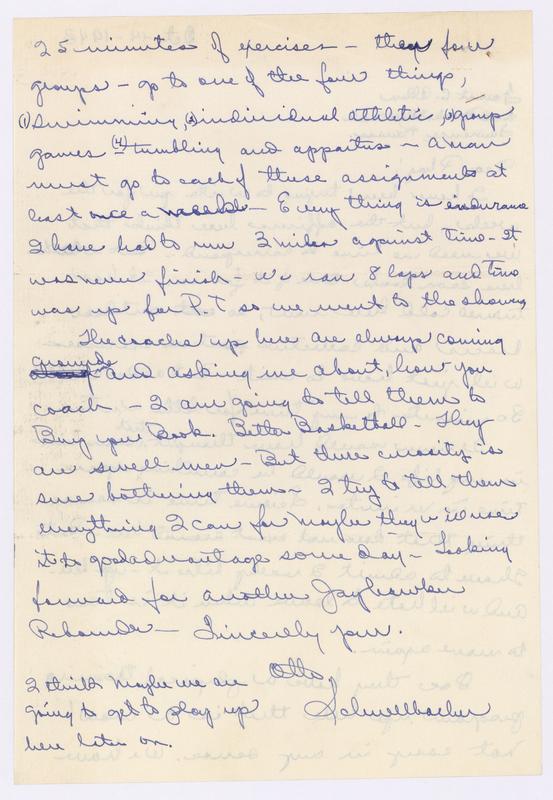 25 minutes of exercises - then four
groups - go to one of the four things,
(1) Swimming, (2) individual athletic (3) group
games (4) tumbling and appartus - a man
must go to each of these assignments at
least once a week - Everything is endurance
I have had to run 3 miles against Time - It
was never finish - we ran 8 laps and Time
was up for P.T so we went to the showers
The coaches up here are always coming
around and asking me about, how you
coach - I am going to tell them to
Buy your Book. Better Basketball - They
are swell men - But there curosity is
sure bothering them - I try to tell them
everything I can for maybe they will use
it to good advantage some day - Looking
forward for another Jayhawker
Rebounder - Sincerely your.
Otto
Schnellbacher
I think maybe we are
going to get to play up
here later on.